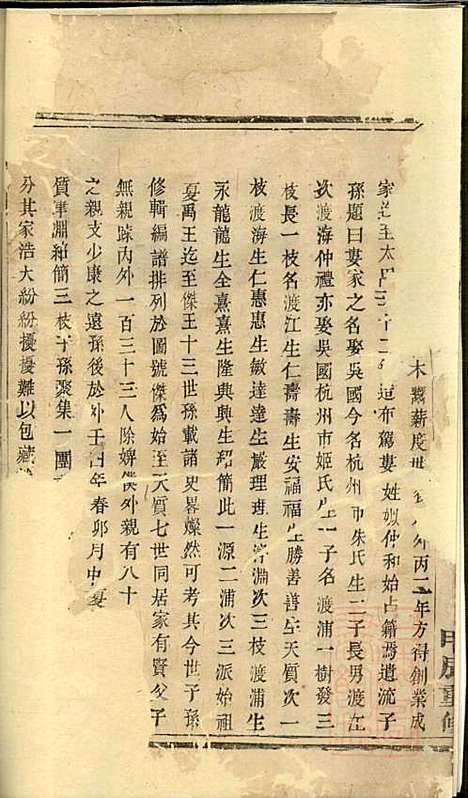 木 薪度 丙二年方得創業成
家 至太 二 道布篤婁姓姒仲和始占籍焉遺流子
孫題曰婁家之名娶吳國今名杭州市朱氏生二子長男渡江
次渡海仲禮亦娶吳國杭州市姬氏生一子名渡浦一樹發三
枝長一枝名渡江生仁壽壽生安福福生勝善善生天質次一
枝渡海生仁惠惠生敏達達生嚴理理生 淵次三枝渡浦生
永龍龍生全熹熹生隆典典生紹簡此一源二浦次三派始祖
夏禹王迄至傑王十三世孫載諸史畧燦然可考其今世子孫
修輯編譜排列於圖號傑爲始至天質七世同居家有賢父子
無親疎內外一百三十三人除婢僕外親有八十
之親支少康之遠孫後於 壬 年春卯月中
質 淵紹簡三枝子孫聚集一團
分其家浩大紛紛擾擾難以包藏
重修